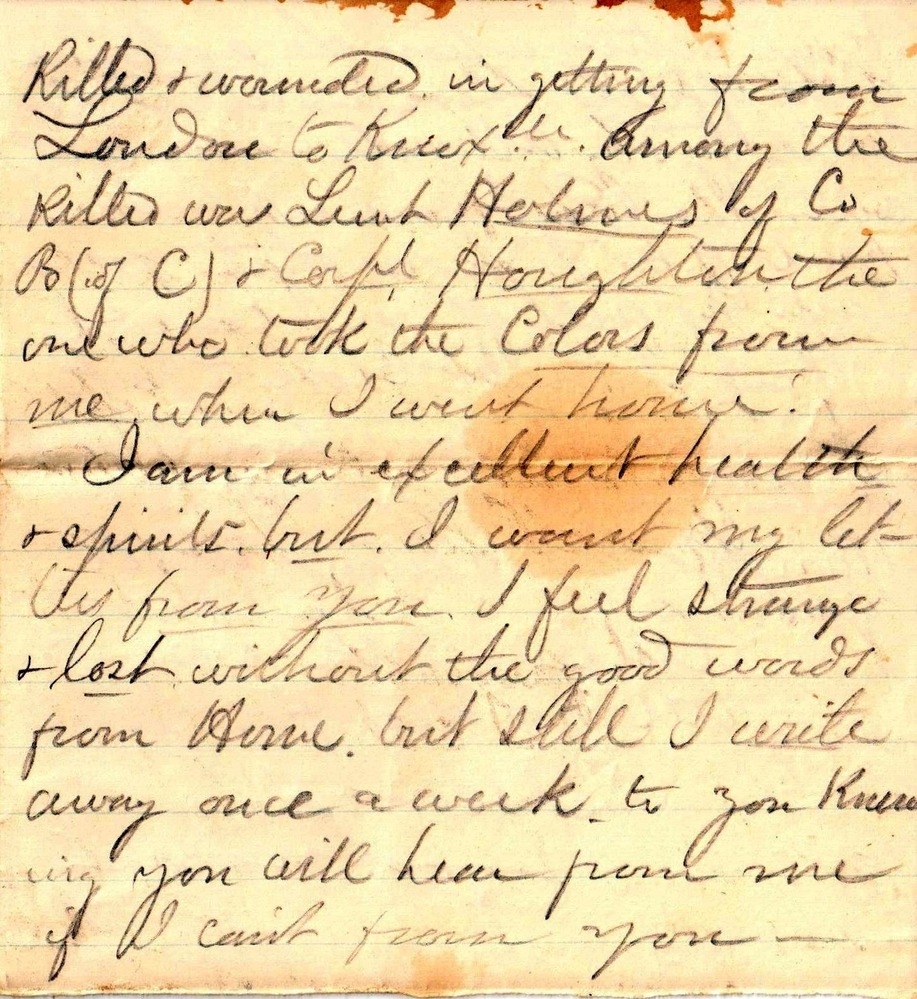 Killed & wounded in getting from
London to Knox.ville. Among the
Killed was Lieut Holmes of Co
B (of C) & Corpl. Houghton the
one who took the Colors from
me, when I went home.
I am in excellent health
& spirits. but. I want my let-
ters from you. I feel strange
& lost without the good words
from Home. but still I write
away once a week to you Know
ing you will hear from me
if I can't from you —